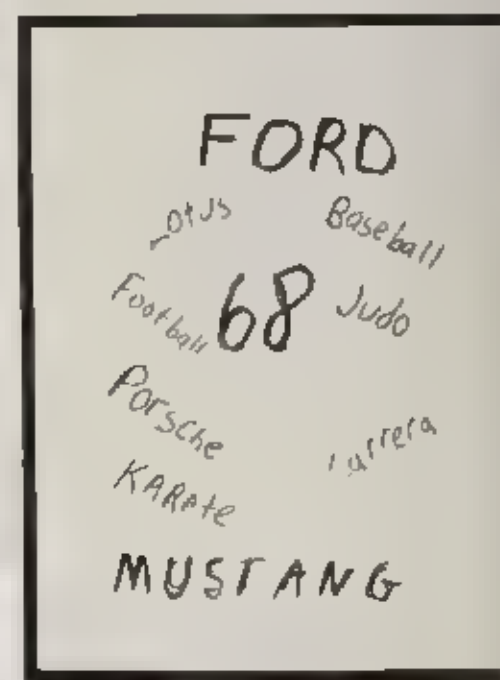 FORD
Lotus
Baseball
Football
68
Judo
Porsche
Carrera
KARAte
MUSTANG